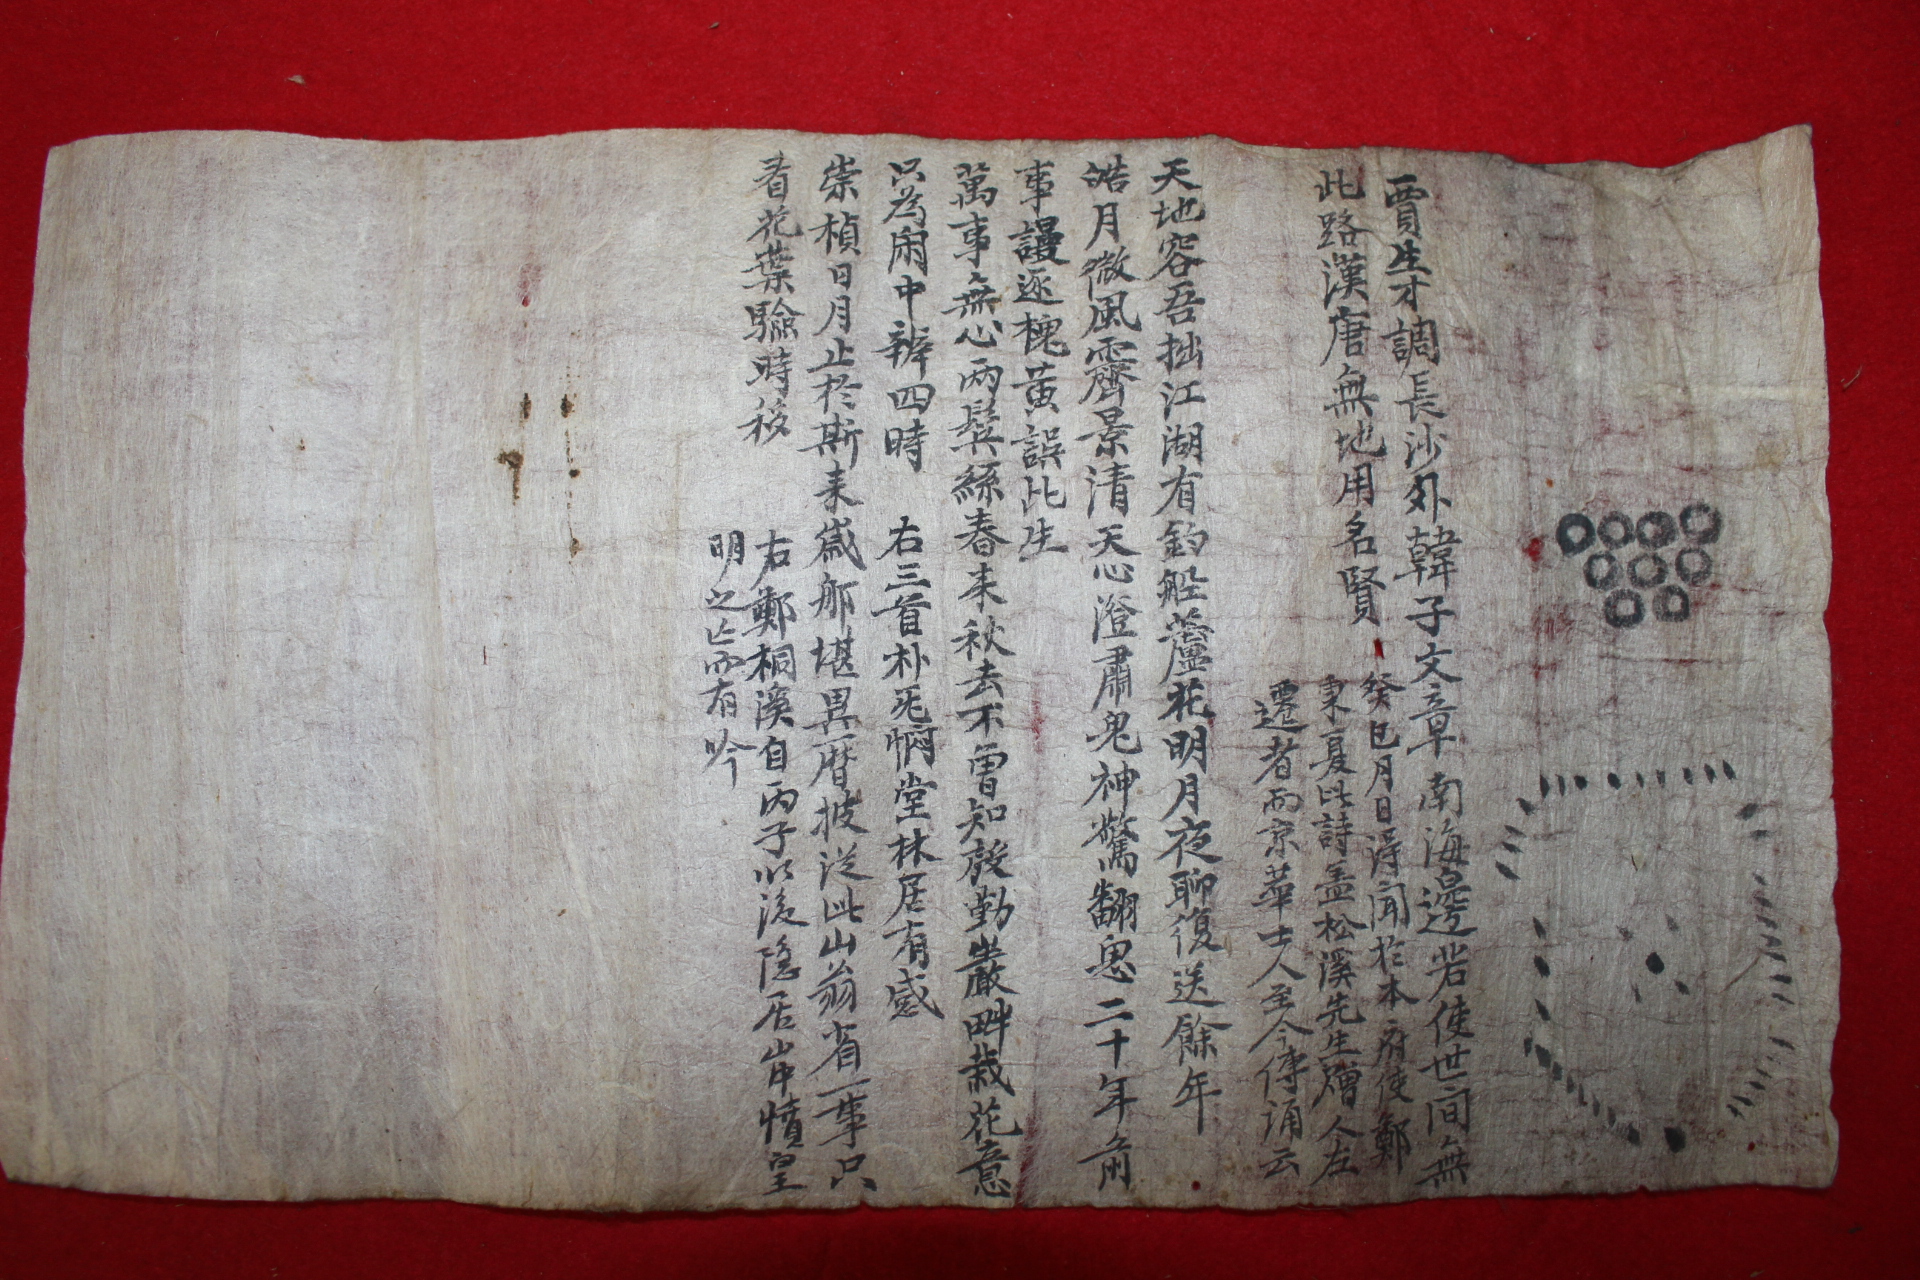 賈生才調長沙外韓子文章南海邊若使世间無
此路漢唐無地用名賢
癸巳月日得聞於本府使鄭
東夏此詩盖松溪先生贈人左
遷者而京華士人至今傳誦云
天地容吾拙江湖有釣船蘆花明月夜聊復送餘年
皓月微風霽景清天心澄肅鬼神驚翻思二十年前
事謾逐槐黃誤此生
萬事無心兩鬂絲春来秋去不曾知殷勤巖畔栽花意
只為閑中辨四時　右三首朴无悶堂林居有感
崇楨日月止於斯来歲那堪異曆披從此山翁省一事只
看花葉驗時移
右鄭桐溪自丙子以後隐居山中憤皇
明之亡而有吟